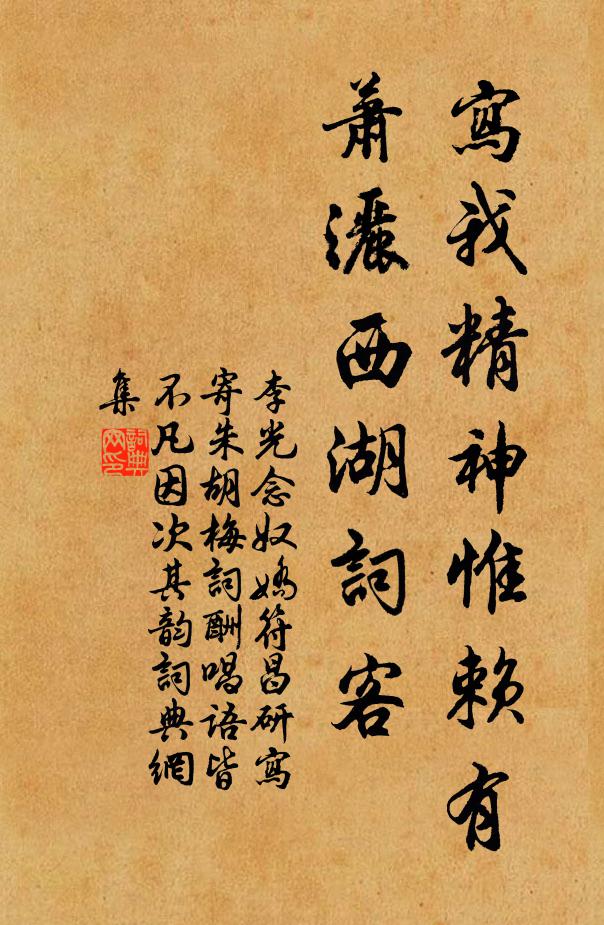 寫我精神惟賴有
蕭灑西湖詞客
李光念奴嬌符昌研寫
寄朱胡梅詞酬唱語皆
不凡因次其韵詞典網
集
詞典
网印